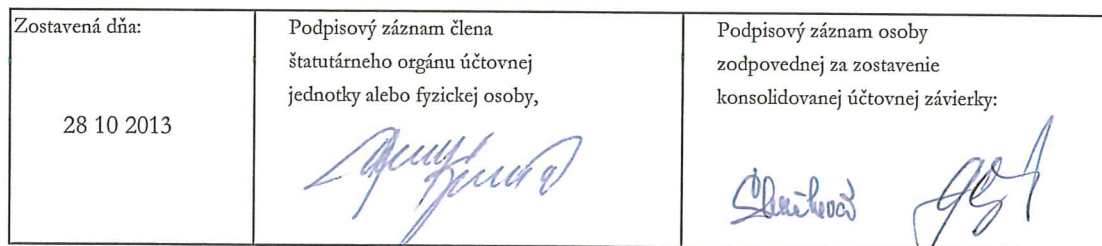 Zostavená dňa:
28 10 2013
Podpisový záznam člena
štatutárneho orgánu účtovnej
jednotky alebo fyzickej osoby,
Podpisový záznam osoby
zodpovednej za zostavenie
konsolidovanej účtovnej závierky: